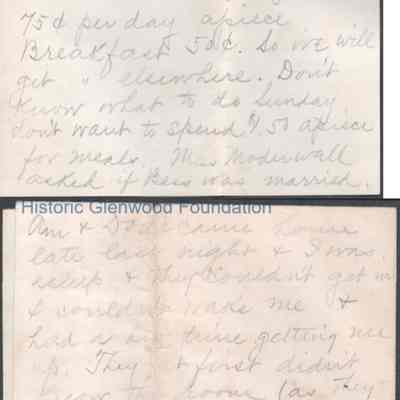 75¢ per day apiece
Breakfast 50¢. So we will
get " elsewhere. Don't
know what to do Sunday
don't want to spend $1.50 apiece
for meals. Mrs
asked if Bess was married.
Historic Glenwood Foundation
& came home
late last night & I was
asleep & they couldn't get in
& couldn't wake me &
had a time getting me
up. They at first didn't
know the room (as they